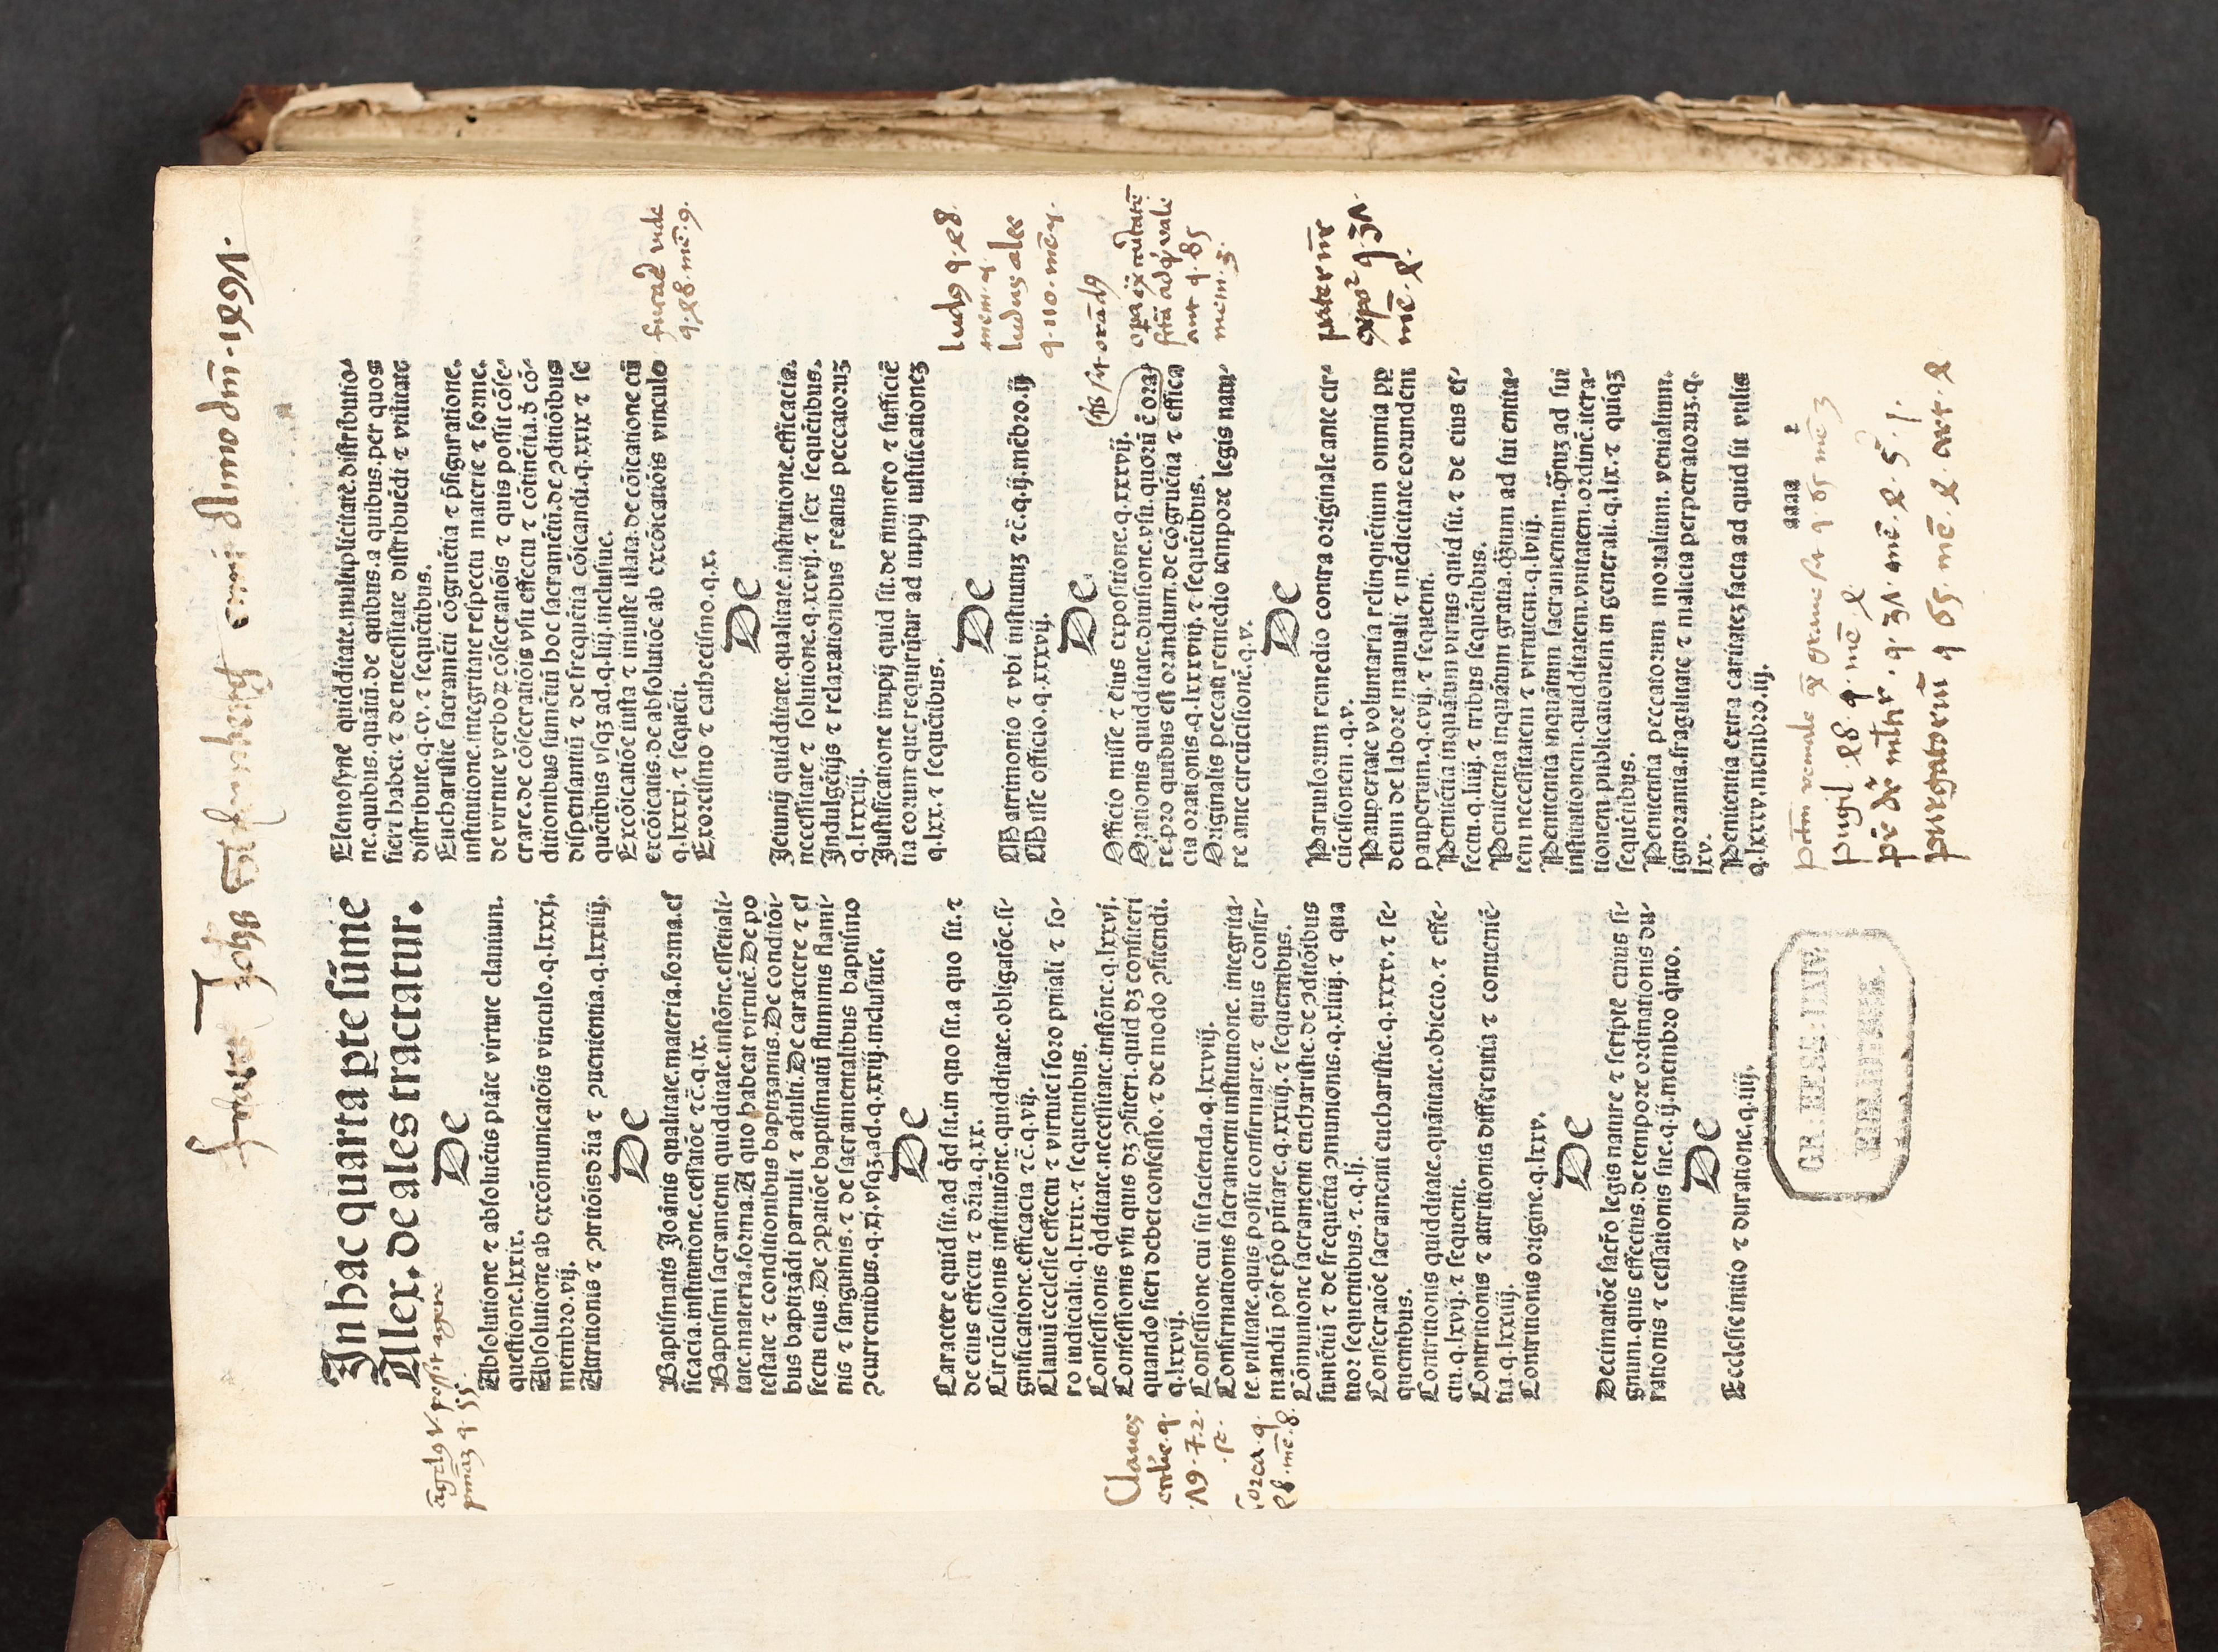 Anno dnī. 1491.
In hac quarta ꝑte sūme
Alex. de ales tractatur.
De
Absolutione ⁊ absoluētis ptāte virtute clauium.
questione.lxxix.
Absolutione ab excōmunicatōis vinculo.q.lxxxj.
membro.vij.
Attritionis ⁊ ꝯtritōis dr̄ia ⁊ ꝯuenientia.q.lxxiiij.
De
Baptismatis Joānis qualitate.materia.forma.ef
ficacia.institutione.cessatōe ⁊c̄.q.ix.
Baptismi sacramenti quidditate.instōne.essētiali-
tate.materia.forma.A quo habeat virtutē.De po
testate ⁊ conditionibus baptizantis.De conditōi-
bus baptizādi paruuli ⁊ adulti.De caractere ⁊ ef
fectu eius.De ꝯparatiōe baptismatū fluminis flami-
nis ⁊ sanguinis.⁊ de sacramentalibus baptismo
ꝯcurrentibus.q.xj.vsqꝫ.ad.q.xxiij.inclusiue.
De
Caractere quid sit.ad qd̄ sit.in quo sit.a quo sit.⁊
de eius effectu ⁊ dr̄ia.q.xx.
Circūcisionis institutōne.quidditate.obligatōe.si-
gnificatione.efficacia ⁊c̄.q.vij.
Clauiū ecclesie effectu ⁊ virtute ī foro pniali ⁊ fo-
ro iudiciali.q.lxxix.⁊ sequentibus.
Confessionis qdditate.necessitate.instōne.q.lxxvj.
Confessionis vsu quis dꝫ ꝯfiteri.quid dꝫ confiteri
quando fieri debet confessio.⁊ de modo ꝯfitendi.
q.lxxvij.
Confessione cui sit facienda.q.lxxviij.
Confirmationis sacramenti institutione. integrita-
te.vtilitate.quis possit confirmare.⁊ quis confir-
mandū pōt ep̄o pn̄tare.q.xxiiij.⁊ sequentibus.
Cōmunione sacramenti eucharistie.de ꝯditōibus
sumētiū ⁊ de frequētia ꝯmunionis.q.xliiij.⁊ qua
tuor sequentibus.⁊.q.lj.
Consecratōe sacramenti eucharistie.q.xxxv.⁊ se-
quentibus.
Contritionis quidditate.quātitate.obiecto.⁊ effe-
ctu.q.lxvij.⁊ sequenti.
Contritionis ⁊ attritionis differentia ⁊ conueniē
tia.q.lxxiiij.
Contritionis origine.q.lxxv.
De
Decimatiōe sacr̄o legis nature ⁊ scripte cuius si-
gnum.quis effectus.de tempore ordinationis du-
rationis ⁊ cessationis sue.q.ij.membro qnto.
De
Ecclesie initio ⁊ duratione.q.iiij.
Elemosyne quidditate.multiplicitate.distributio-
ne.quibus.quātū.de quibus.a quibus.per quos
fieri habet.⁊ de necessitate distribuēdi ⁊ vtilitate
distribute.q.cv.⁊ sequētibus.
Eucharistie sacramēti cōgruētia ⁊ p̄figuratione.
institutione.integritate respectu materie ⁊ forme.
de virtute verboꝝ cōsecratiōis ⁊ quis possit cōse-
crare.de cōsecratiōis vsu effectu ⁊ cōtinētia.d̄ cō-
ditionibus sumētiū hoc sacramētū.de ꝯditiōibus
dispensantiū ⁊ de frequētia cōicandi.q.xxix ⁊ se
quētibus vsqꝫ ad.q.liij.inclusiue.
Excōicatiōe iusta ⁊ iniuste illata.de cōicatione cū
excōicatis.de absolutiōe ab excōicatiōis vinculo
q.lxxxj.⁊ sequēti.
Exorcismo ⁊ cathecismo.q.x.
De
Jeiunij quidditate.qualitate.institutione.efficacia.
necessitate ⁊ solutione.q.xcvij.⁊ sex sequētibus.
Indulgētijs ⁊ relaxationibus reatus peccatoruꝫ
q.lxxxiij.
Justificatione impij quid sit.de nūmero ⁊ sufficiē
tia eorum que requirūtur ad impij iustificationeꝫ
q.lxx.⁊ sequētibus.
De
Matrimonio ⁊ vbi institutuꝫ ⁊c̄.q.ij.mēbro.ij
Misse officio.q.xxxvij.
De
Officio misse ⁊ eius expositione.q.xxxvij.
Orationis quidditate.diuisione.vsu.quorū ē ora-
re.pro quibus est orandum.de cōgruētia ⁊ effica
cia orationis.q.lxxxviij.⁊ sequētibus.
Originalis peccati remedio tempore legis natu-
re ante circūcisionē.q.v.
De
Paruulorum remedio contra originale ante cir-
cūcisionem.q.v.
Paupertate voluntaria relinquētium omnia ꝓp
deum de labore manuali ⁊ mēdicitate eorundem
pauperum.q.cvij.⁊ sequenti.
Penitētia inquātum virtus quid sit.⁊ de eius ef-
fectu.q.liiij.⁊ tribus sequētibus.
Penitentia inquātum gratia.qm̄tum ad sui entita-
tem necessitatem ⁊ virtutem.q.lviij.
Penitentia inquātum sacramentum.qm̄tuꝫ ad sui
institutionem.quidditatem.vnitatem.ordinē.itera-
tionem publicationem in generali.q.lix.⁊ quiqꝫ
sequētibus.
Penitentia peccatorum mortalium. venialium.
ignorantia.fragilitate ⁊ malicia perpetratoruꝫ.q.
lxv.
Penitentia extra caritateꝫ facta ad quid sit vtilis
q.lxxxv.membro.iij.
GR: HESS: UNIV:
BIBLIOTHEK